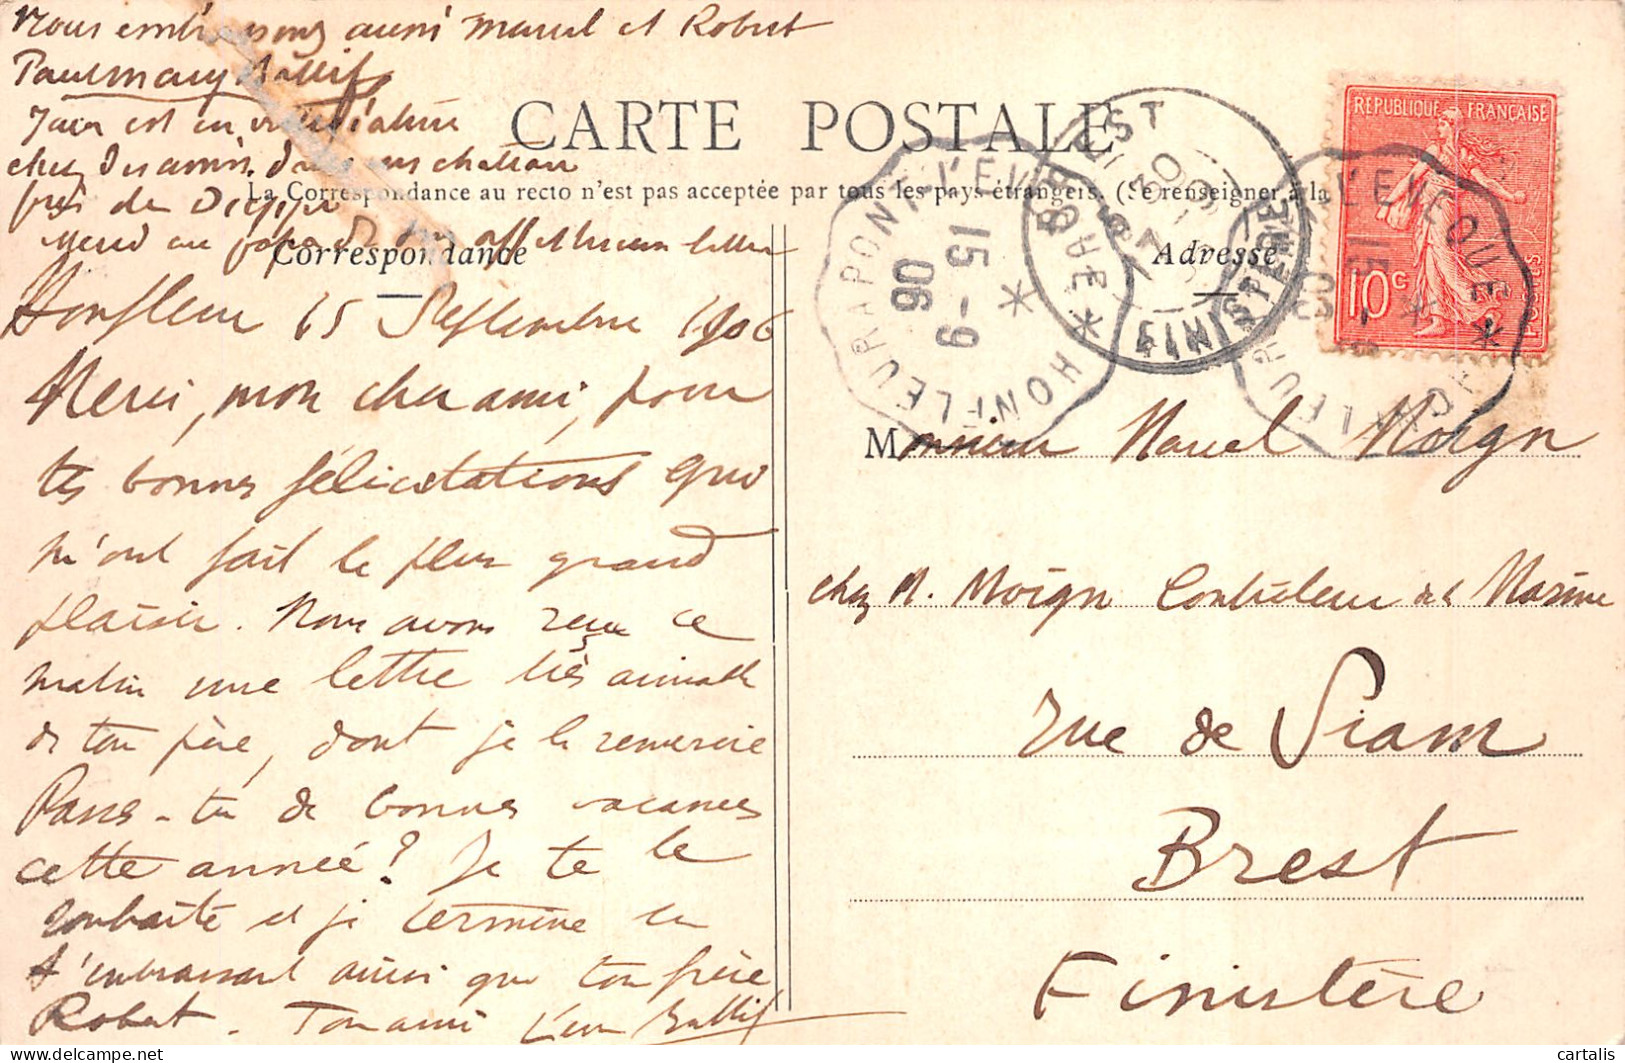 Nous embrassons aussi Marcel et Robert
Paul Mary Ballif
Jean est en villégiature
chez des amis dans un chateau
près de Dieppe
Merci au papa de son affectueuse lettre
CARTE POSTALE
La Correspondance au recto n'est pas acceptée par tous les pays étrangers. (Se renseigner à la
Correspondance
Adresse
REPUBLIQUE FRANÇAISE
10 c
POSTES
BREST
FINISTERE
HONFLEUR A PONT-L'EVEQUE
15-9
06
Honfleur 15 Septembre 1906
Merci, mon cher ami, pour
tes bonnes félicitations qui
m'ont fait le plus grand
plaisir. Nous avons reçu ce
matin une lettre très aimable
de ton père, dont je le remercie
Passes-tu de bonnes vacances
cette année? Je te le
souhaite et je termine en
t'embrassant ainsi que ton frère
Robert. Ton ami Léon Ballif
Monsieur Marcel Moign
chez M. Moign Contrôleur de la Marine
rue de Siam
Brest
Finistère
cartalis